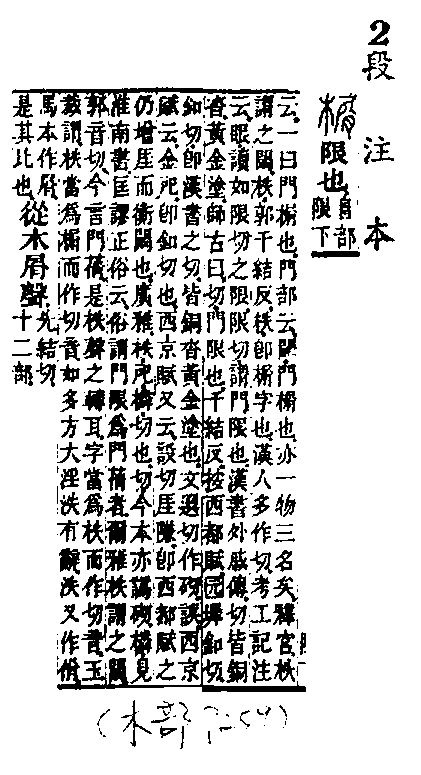 2段注本
榍限也𨸏部限下
云一曰門榍也門部云閾門榍也亦一物三名矣釋宮柣
謂之閾柣郭千結反柣卽榍字也漢人多作切考工記注
云眼讀如限切之限限切謂門限也漢書外戚傳切皆銅
沓黃金塗師古曰切門限也千結反按西都賦玄墀釦切
釦切卽漢書之切皆銅沓黃金塗也文選切作砌誤西京
賦云金戺卽釦切也西京賦又云設切厓隒卽西都賦之
仍增厓而衡閾也廣雅柣戺橉切也切今本亦譌砌橉見
淮南書匡謬正俗云俗謂門限爲門蒨者爾雅柣謂之閾
郭音切今言門蒨是柣聲之轉耳字當爲柣而作切音玉
裁謂柣當爲榍而作切音如多方大淫泆有辭泆又作佾
馬本作屑
是其比也從木屑聲先結切十二部
(木部 )